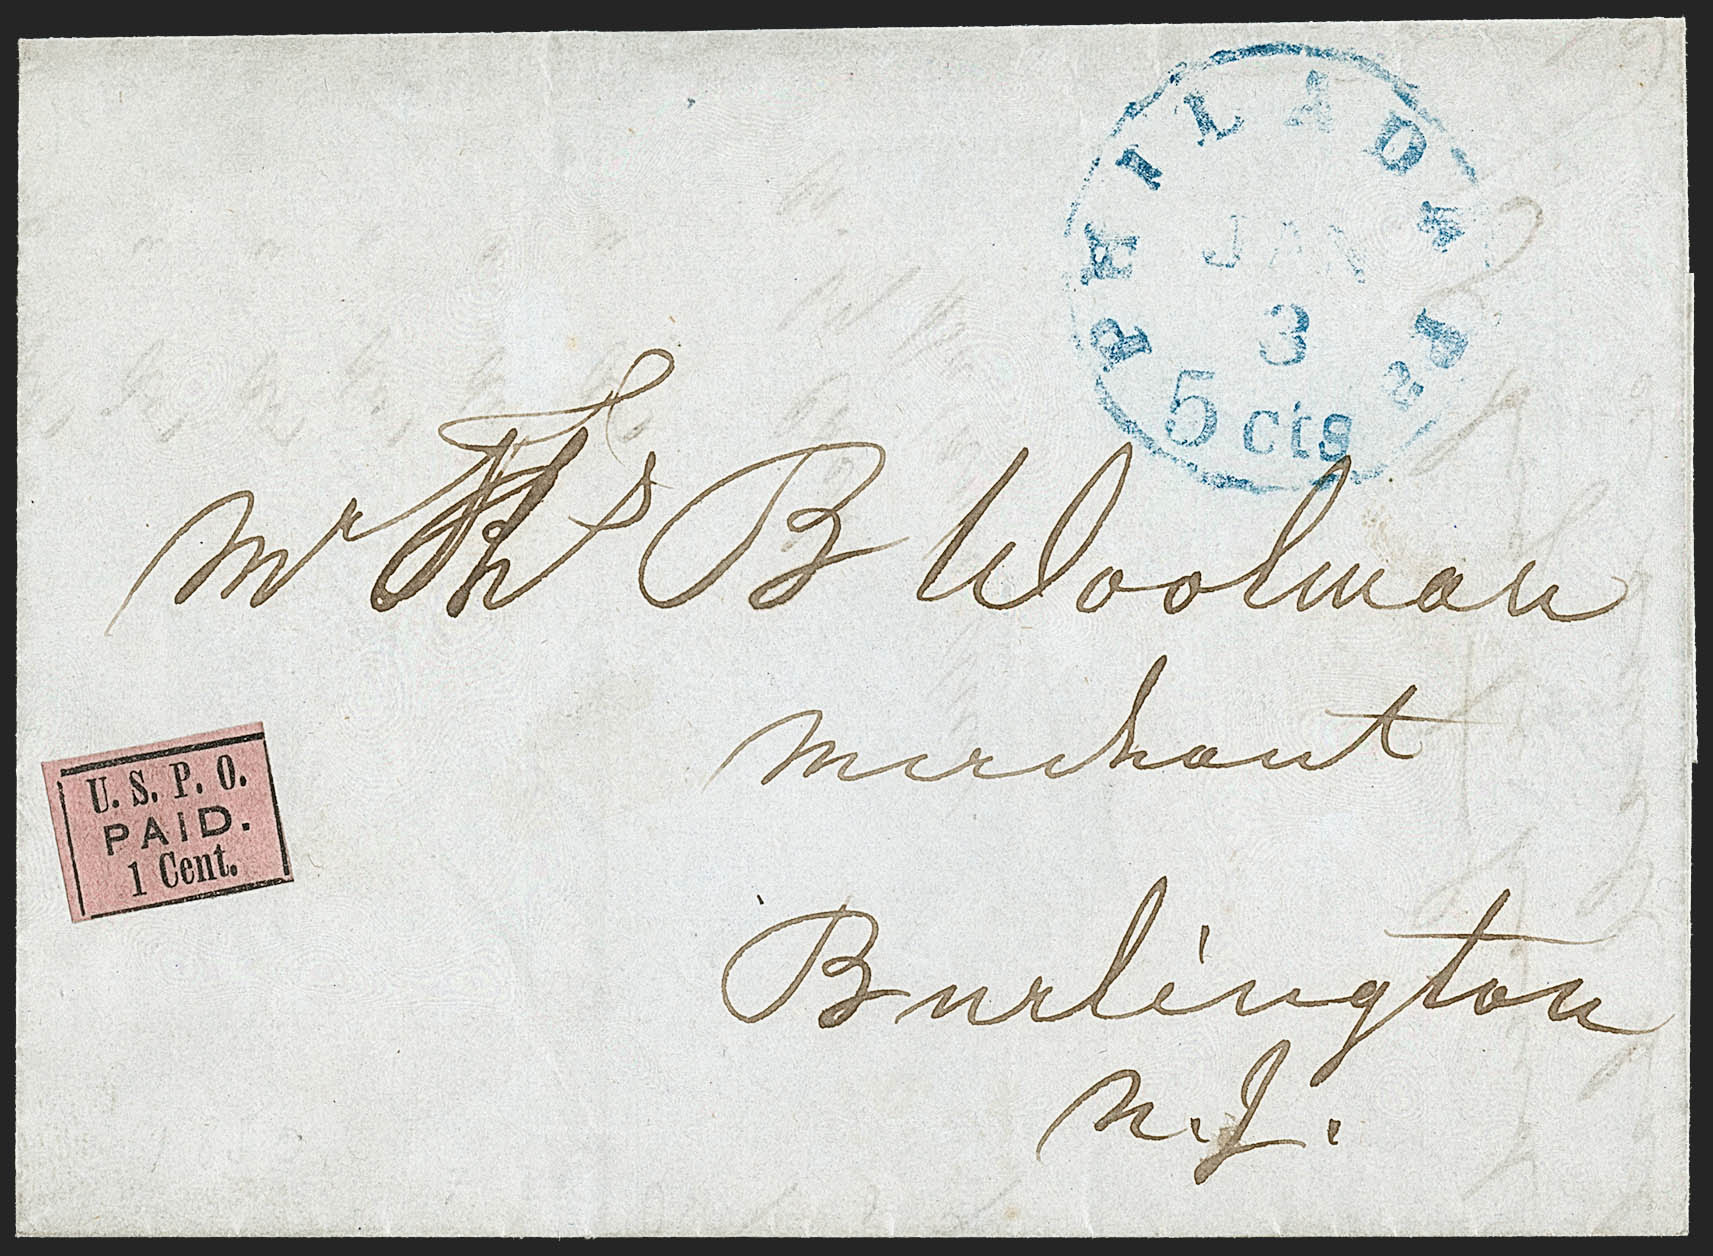 PHILADELPA
JAN
3
5 cts
Mr Ths B Woolman
Merchant
Burlington
N.J.
U. S. P. O.
PAID.
1 Cent.